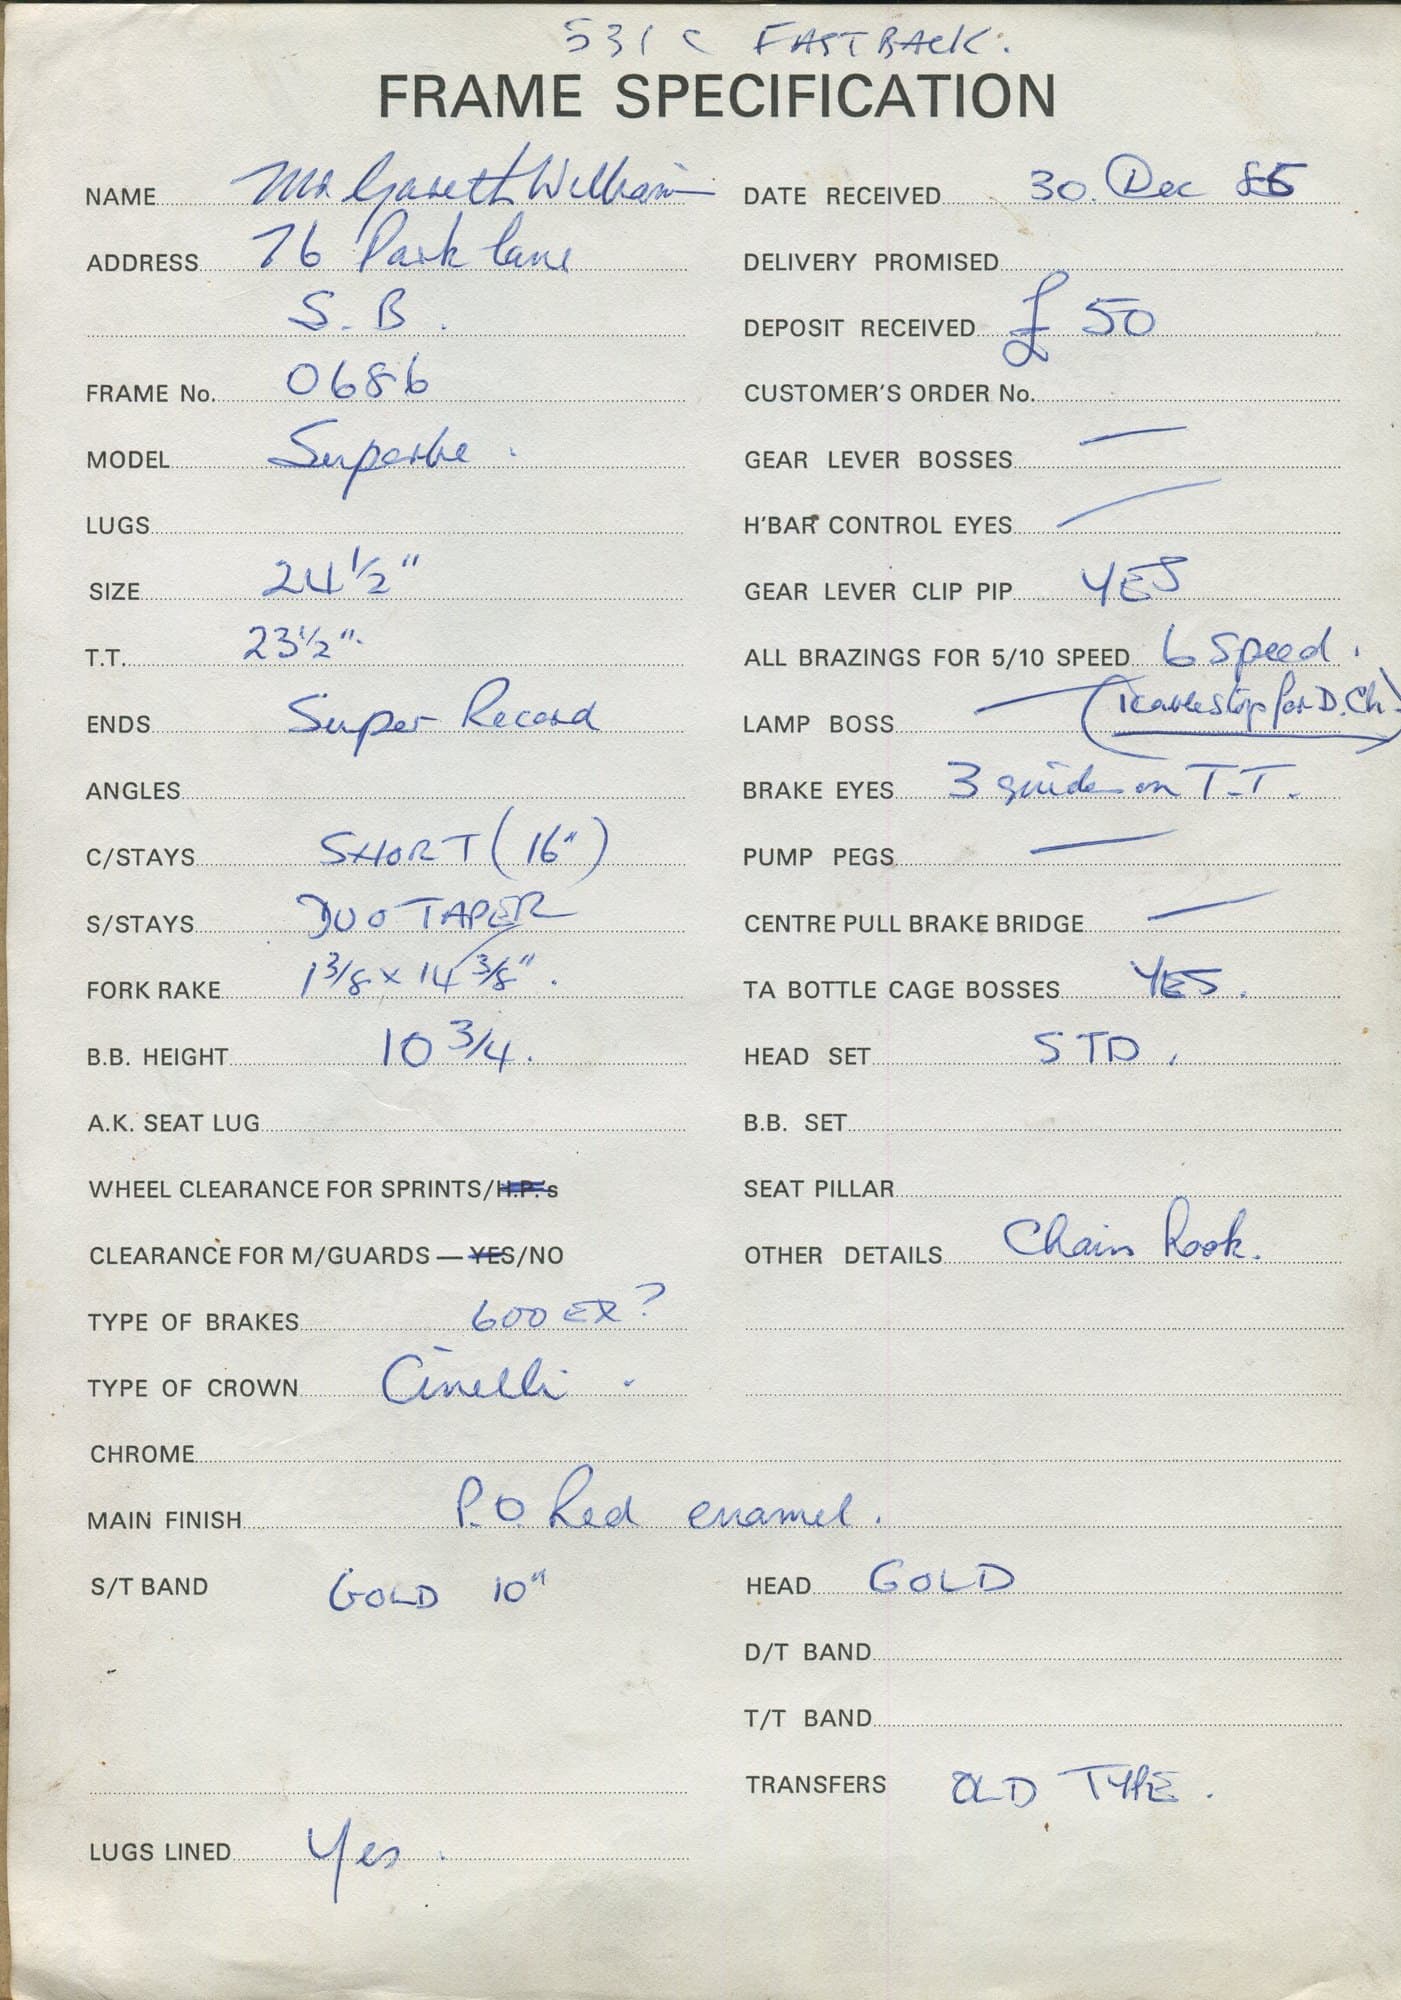 531 C FASTBACK.
FRAME SPECIFICATION
NAME Mr Gareth William
ADDRESS 76 Park lane
S. B.
FRAME No. 0686
MODEL Superbe.
LUGS
SIZE 24 1/2"
T.T. 23 1/2".
ENDS Super Record
ANGLES
C/STAYS SHORT (16")
S/STAYS DUO TAPER
FORK RAKE 1 3/8 x 14 3/8".
B.B. HEIGHT 10 3/4.
A.K. SEAT LUG
WHEEL CLEARANCE FOR SPRINTS/H.P.'s
CLEARANCE FOR M/GUARDS — YES/NO
TYPE OF BRAKES 600 EX?
TYPE OF CROWN Cinelli.
DATE RECEIVED 30. Dec 85
DELIVERY PROMISED
DEPOSIT RECEIVED £50
CUSTOMER'S ORDER No.
GEAR LEVER BOSSES —
H'BAR CONTROL EYES —
GEAR LEVER CLIP PIP YES
ALL BRAZINGS FOR 5/10 SPEED 6 Speed.
(1 cable stop for D.Ch.)
LAMP BOSS —
BRAKE EYES 3 guides on T.T.
PUMP PEGS —
CENTRE PULL BRAKE BRIDGE —
TA BOTTLE CAGE BOSSES YES.
HEAD SET STD.
B.B. SET
SEAT PILLAR
OTHER DETAILS Chain hook.
CHROME
MAIN FINISH P.O. Red enamel.
S/T BAND GOLD 10"
HEAD GOLD
D/T BAND
T/T BAND
TRANSFERS OLD TYPE.
LUGS LINED Yes.